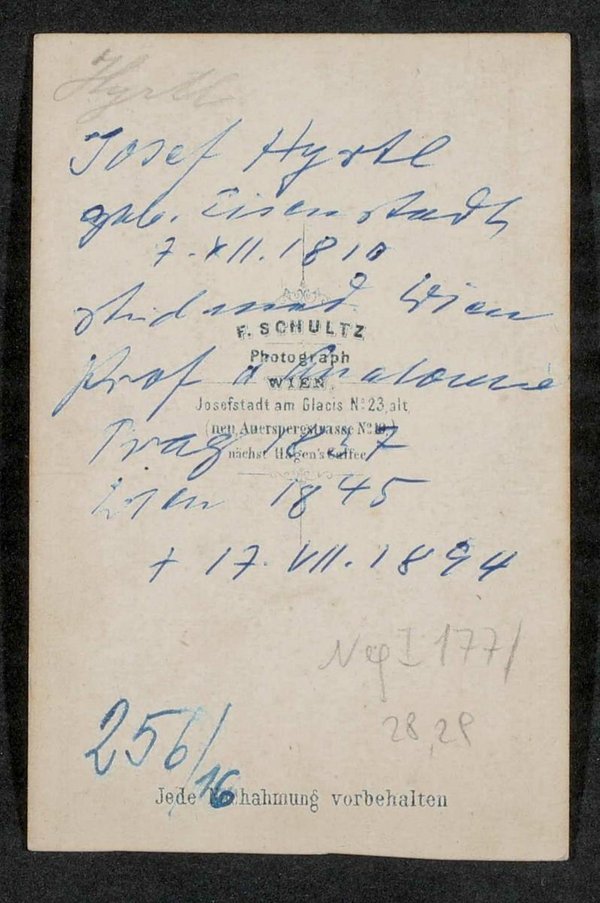 Hyrtl
Josef Hyrtl
geb. Eisenstadt
7. XII. 1810
stud med. Wien
F. SCHULTZ
Photograph
WIEN.
Prof d Anatomie
Josefstadt am Glacis No. 23, alt
(neu Auerspergstrasse No.
nächst Hagen's Caffee
Prag 1837
Wien 1845
† 17. VII. 1894
Neg I 177/
28, 29
256/16
Jede Nachahmung vorbehalten